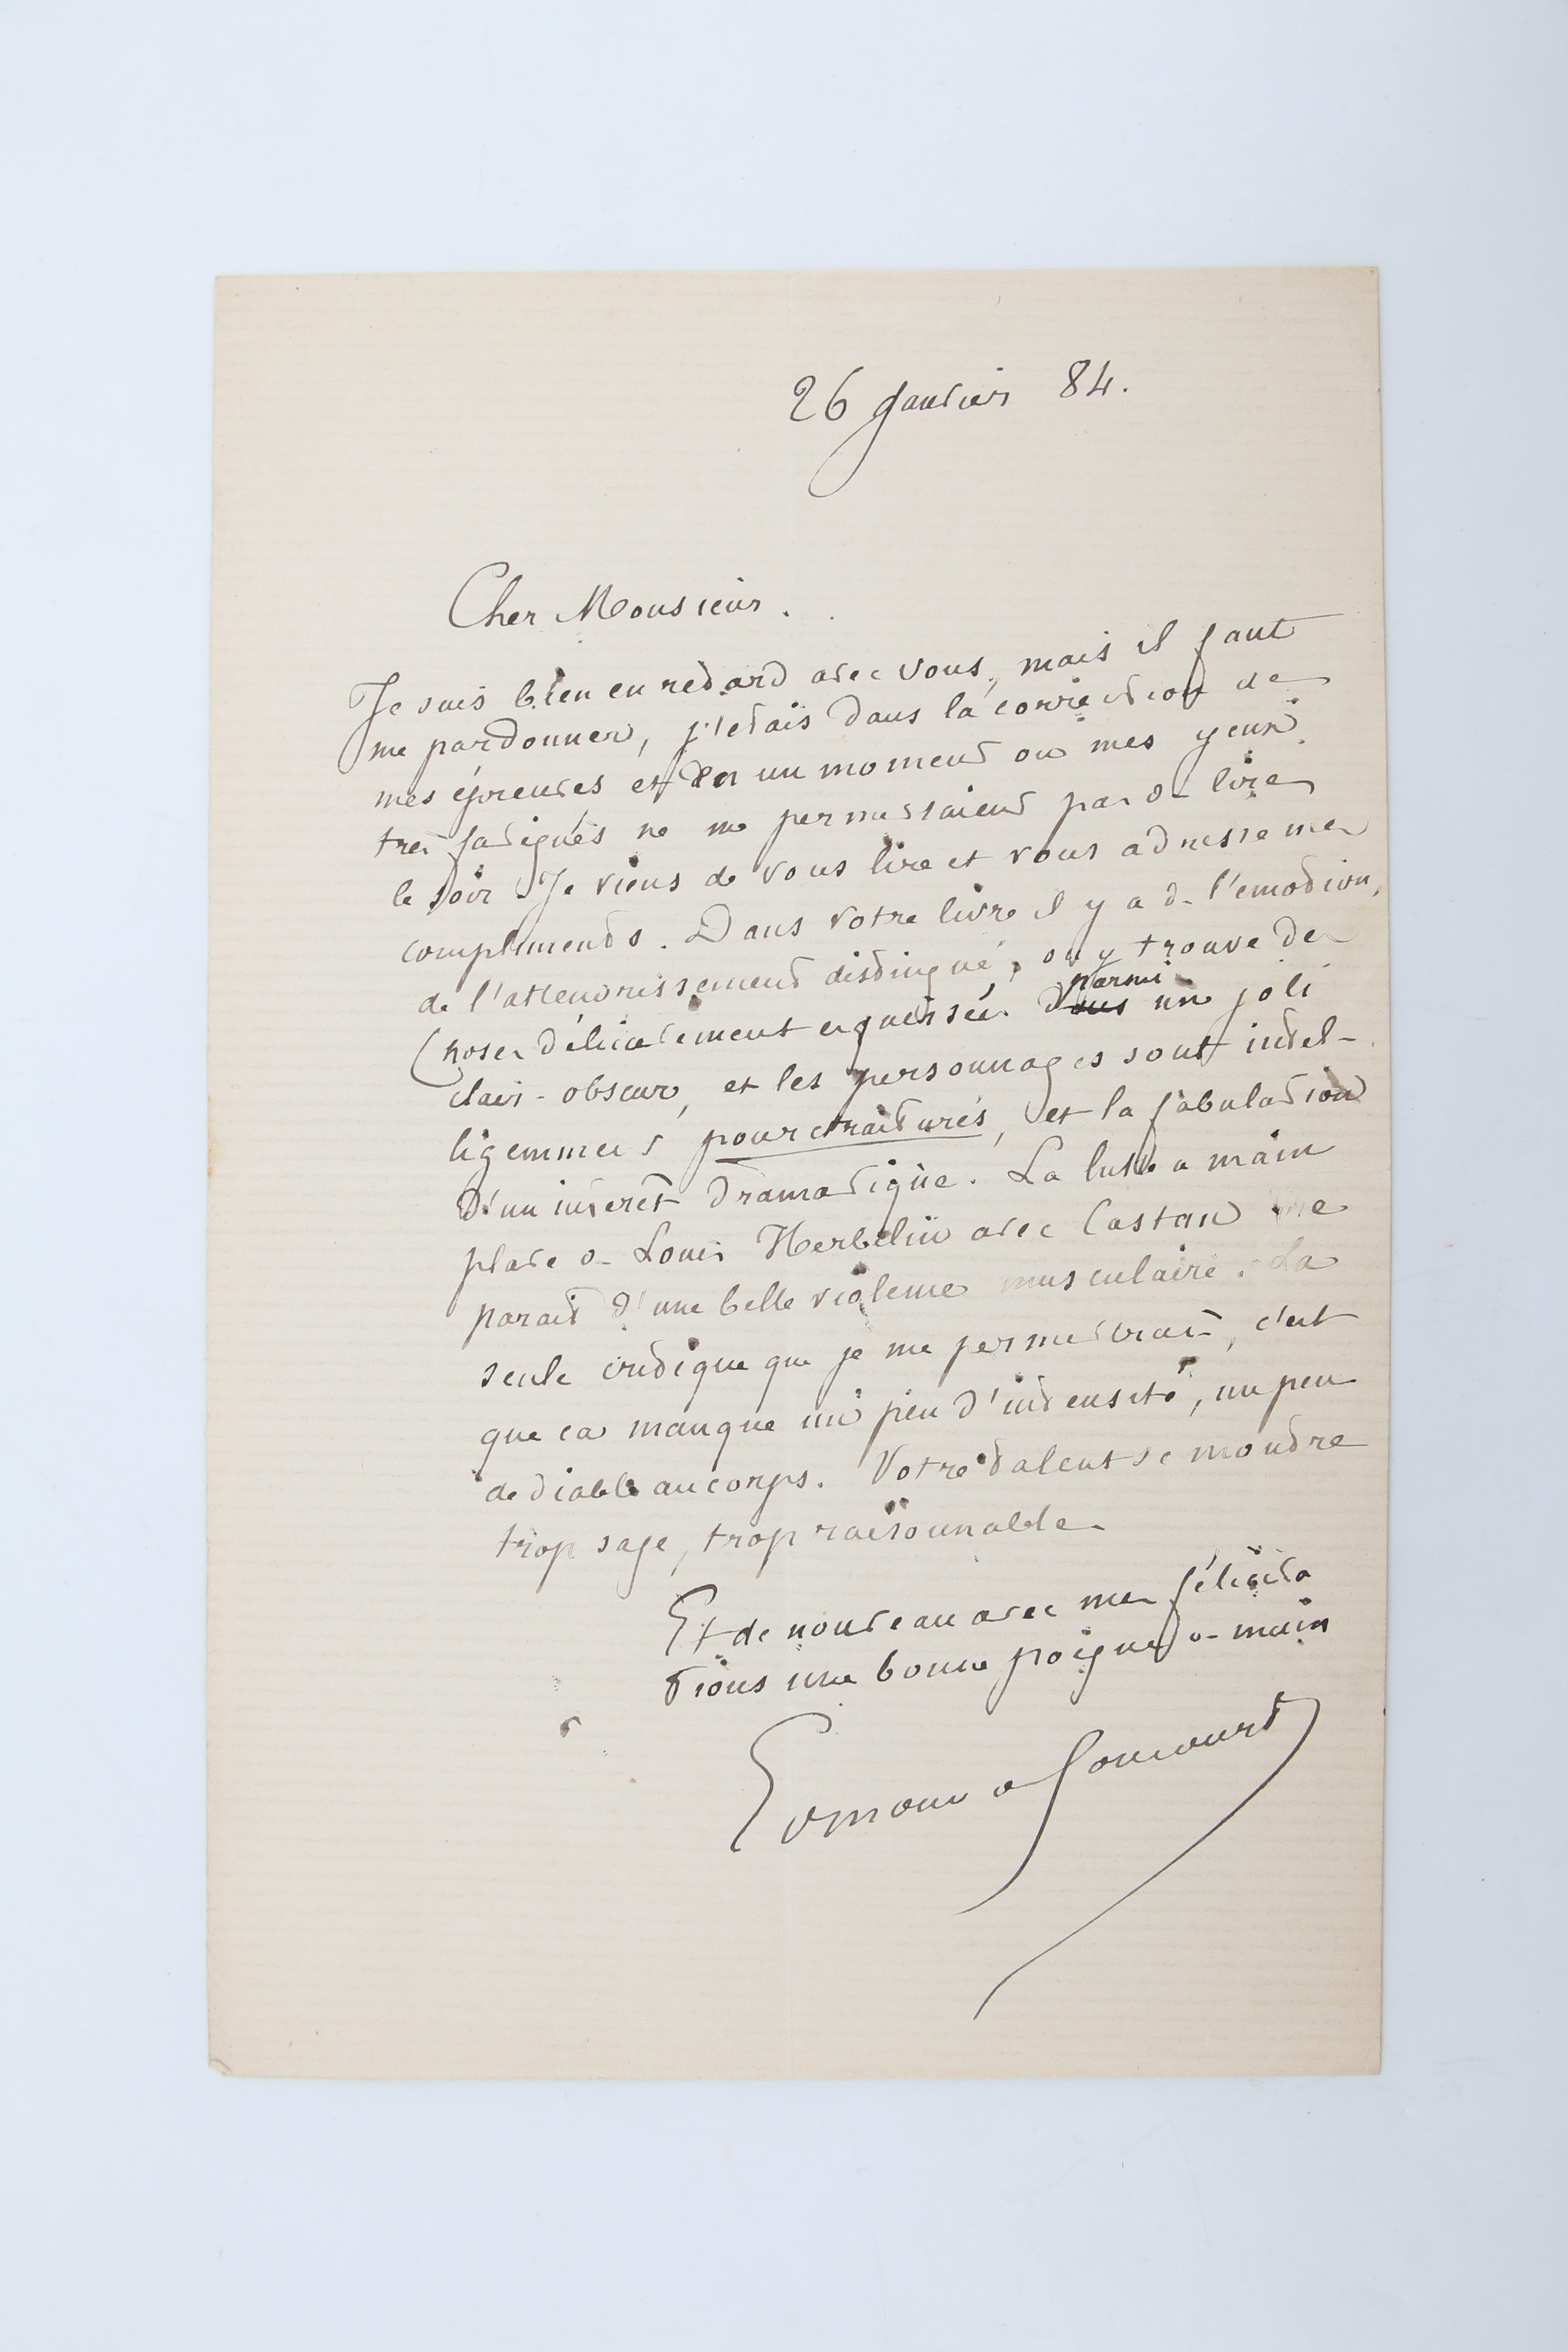 26 janvier 84.
Cher Monsieur.
Je suis bien en retard avec vous, mais il faut
me pardonner, j'étais dans la correction de
mes épreuves et en un moment ou mes yeux
tres fatigués ne me permettaient pas de lire
le soir Je viens de vous lire et vous adresse mes
compliments. Dans votre livre il y a de l'emotion,
de l'attendrissement distingué, on y trouve des
choses délicatement esquissées dans parmi un joli
clair-obscur, et les personnages sont intel-
ligemment pourctraiturés, et la fabulation
d'un interêt dramatique. La lutte a main
plate de Louis Herbelin avec Castan me
parait d'une belle violence musculaire. La
seule critique que je me permettrais, c'est
que ca manque un peu d'intensité, un peu
de diable au corps. Votre talent se montre
trop sage, trop raisonnable.
Et de nouveau avec mes félicita
tions une bonne poignée de main
Edmond de Goncourt